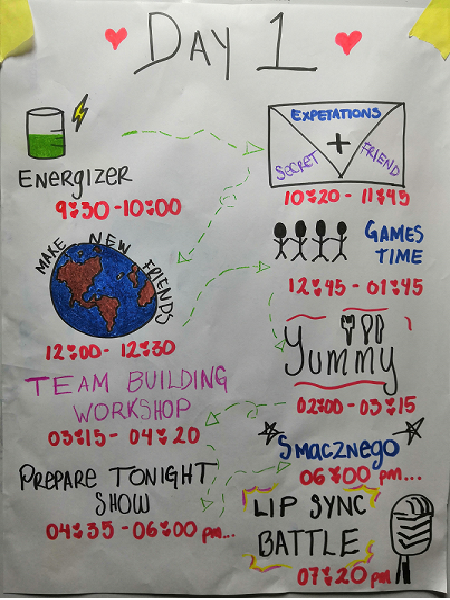 DAY 1
ENERGIZER
9:30 - 10:00
EXPETATIONS
+
SECRET FRIEND
10:20 - 11:45
MAKE NEW FRIENDS
12:00 - 12:30
GAMES
TIME
12:45 - 01:45
Yummy
02:00 - 03:15
TEAM BUILDING
WORKSHOP
03:15 - 04:20
Smacznego
06:00 pm...
PREPARE TONIGHT
SHOW
04:35 - 06:00 pm...
LIP SYNC
BATTLE
07:20 pm